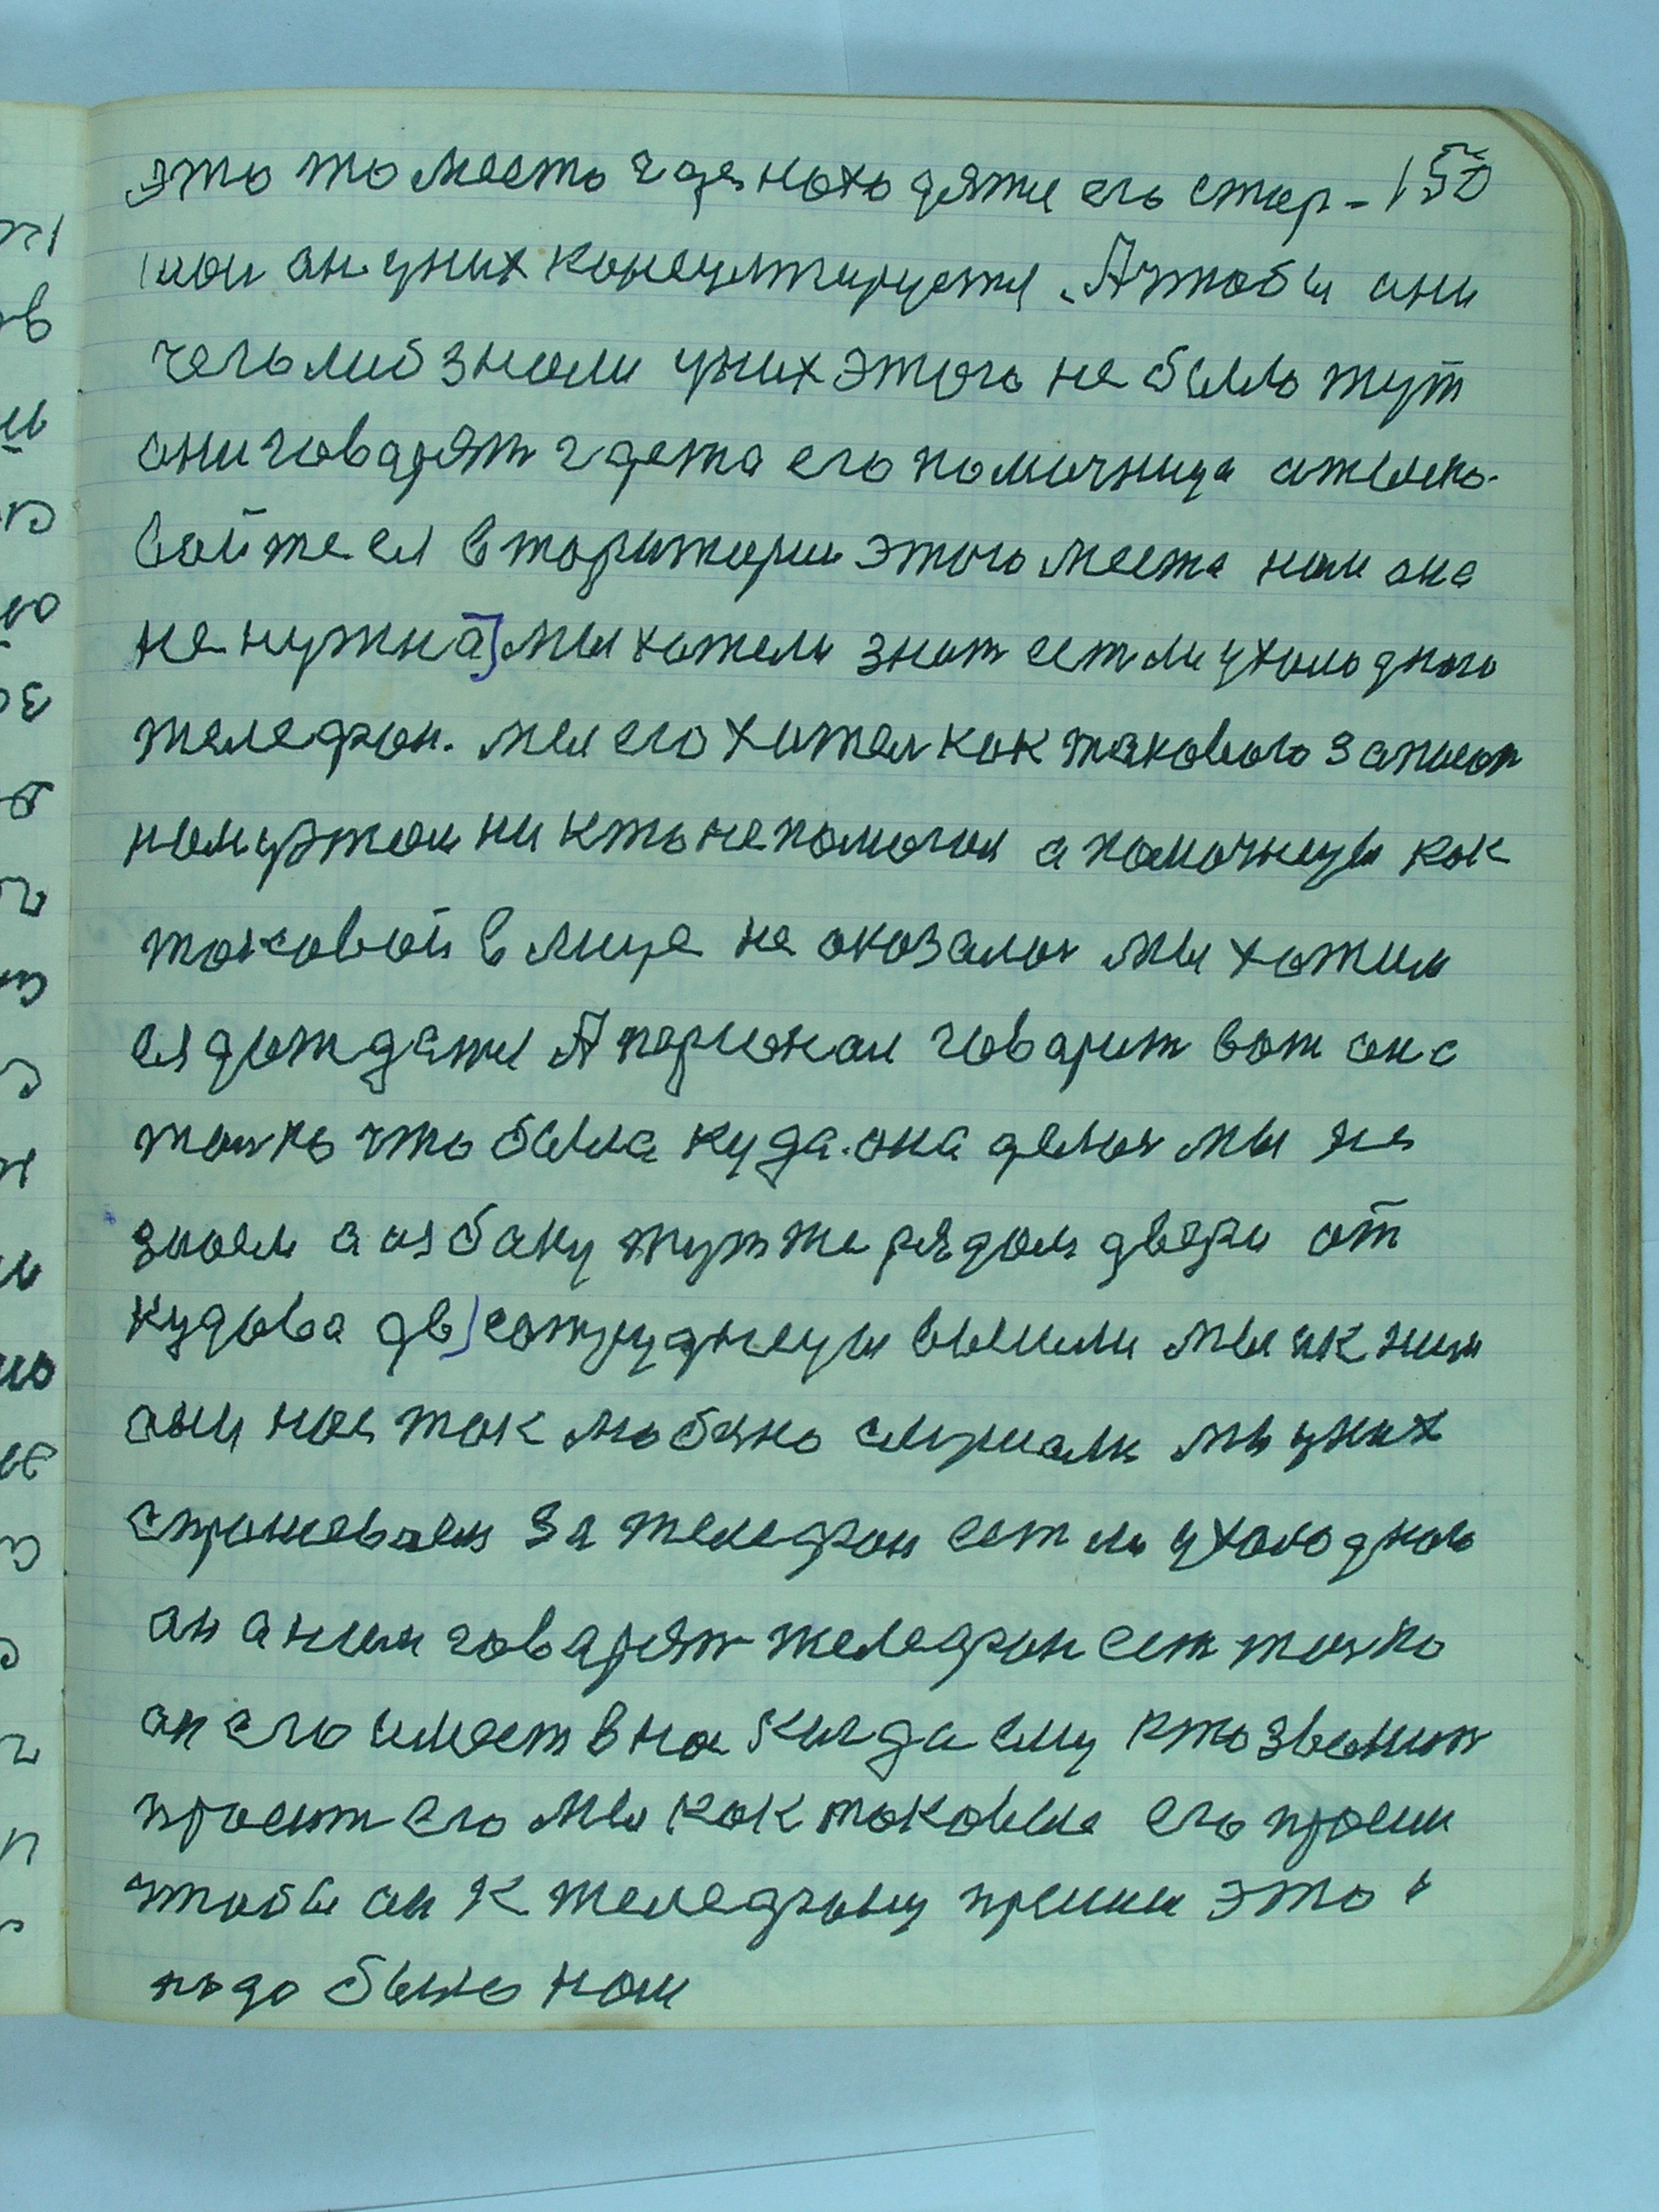 это то место где находятся его стар- 150
шои он у них консултируется. А чтобы они
чеголиб знали у них этого не было тут
они говарят где то его помочница отыско-
вайте ея в тораторие этого места нам она
не нужна мы хотели знат ест ли у холодного
телефон. мы его хотел как такового запесат
нам у этом ни кто не помогал а помочнецы как
таковой в лице не оказалос мы хотим
ея дождатся А персонал говарит вот она
толко что была куда она делас мы не
знаем а из баку тут же рядом двери от
кудова дв сотруднецы вышли мы и к ним
они нас так любезно слушали мы у них
спрошеваем за телефон ест ли у холодного
он они нам говарят телефон ест толко
он его имеет в нос когда ему кто звонит
просит его мы как таковые его просим
чтобы он к телефону пришел это
надо было нам